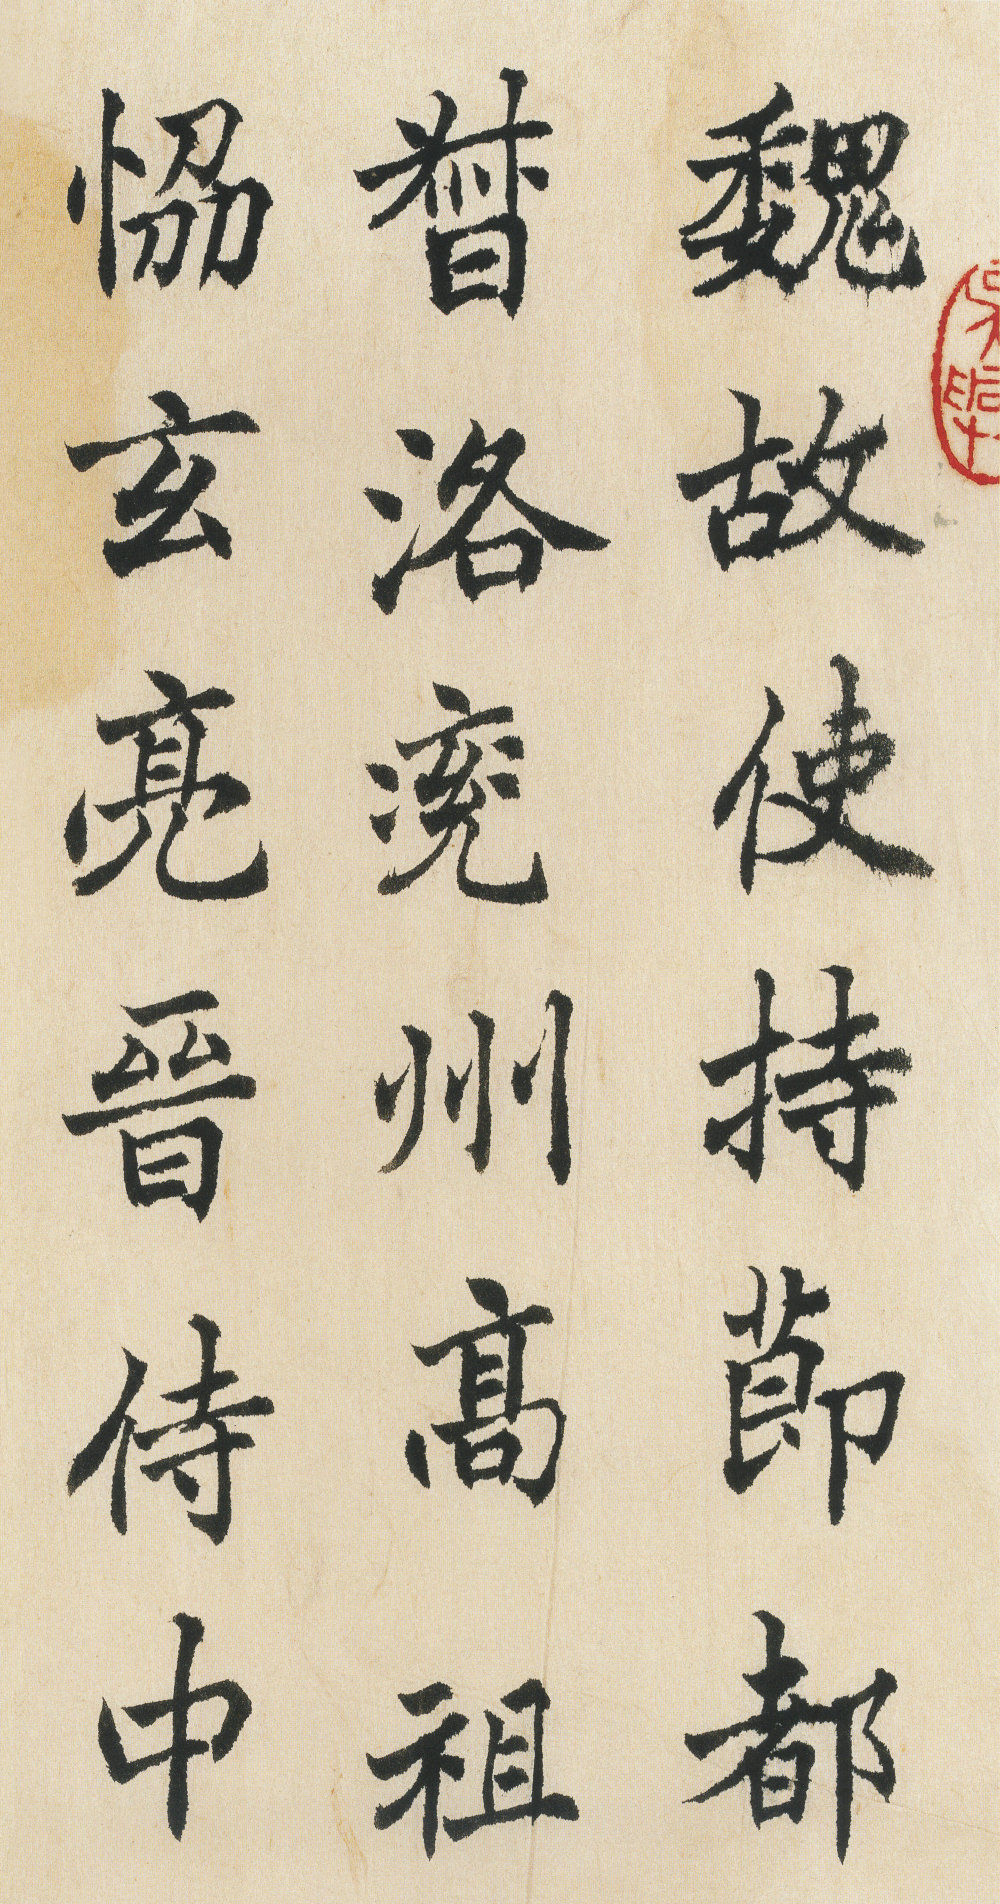 魏故使持節都
督洛兗州高祖
恊玄亮晉侍中